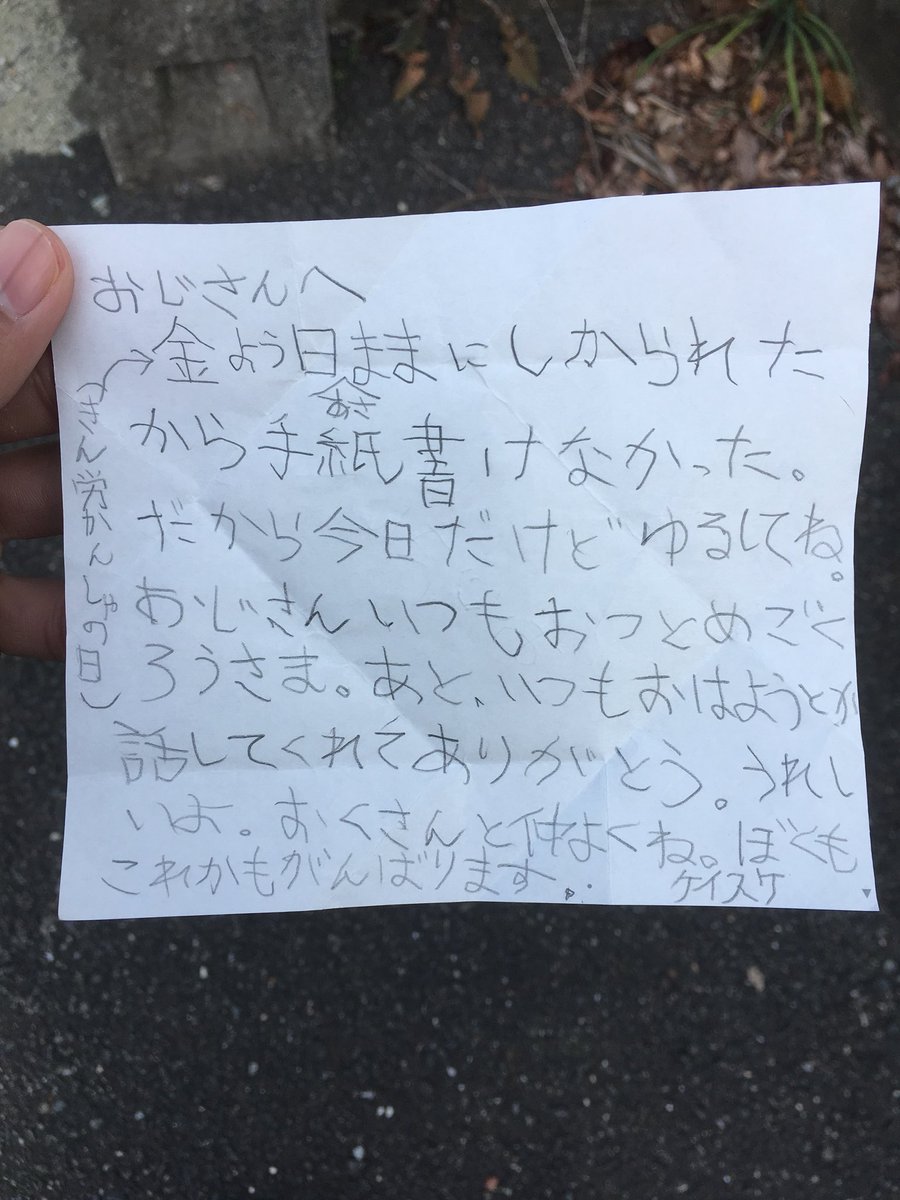 おじさんへ
金よう日ままにしかられた
から手紙書けなかった。
だから今日だけどゆるしてね。
おじさんいつもおつとめごく
ろうさま。あと、いつもおはようとか
話してくれてありがとう。うれし
いよ。おくさんと仲よくね。ぼくも
これかもがんばります。
ケイスケ
(きん労かんしゃの日)